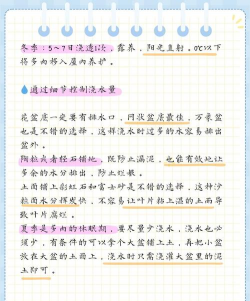 冬季：5～7日浇透1次，露养，阳光直射。0℃以下
将多肉移入屋内养护。
通过细节控制浇水量
花盆底一定要有排水口，网状盆底最佳，万象盆
也是不错的选择，这样浇水时过多的水容易排出
盆外。
陶粒或者轻石铺地，既防止满泥，也能有效地让
多余的水分排出，防止烂根。
土面铺上彩虹石和富士砂是不错的选择，这种沙
粒面水分挥发快，不容易让叶片粘上湿的土而导
致叶片腐烂。
夏季是多肉的休眠期，要尽量少浇水，浇水也必
须少，有条件的可以拿个大盆铺上土，再把小盆
放在大盆的土面上，浇水时只需浇灌大盆里的泥
土即可。